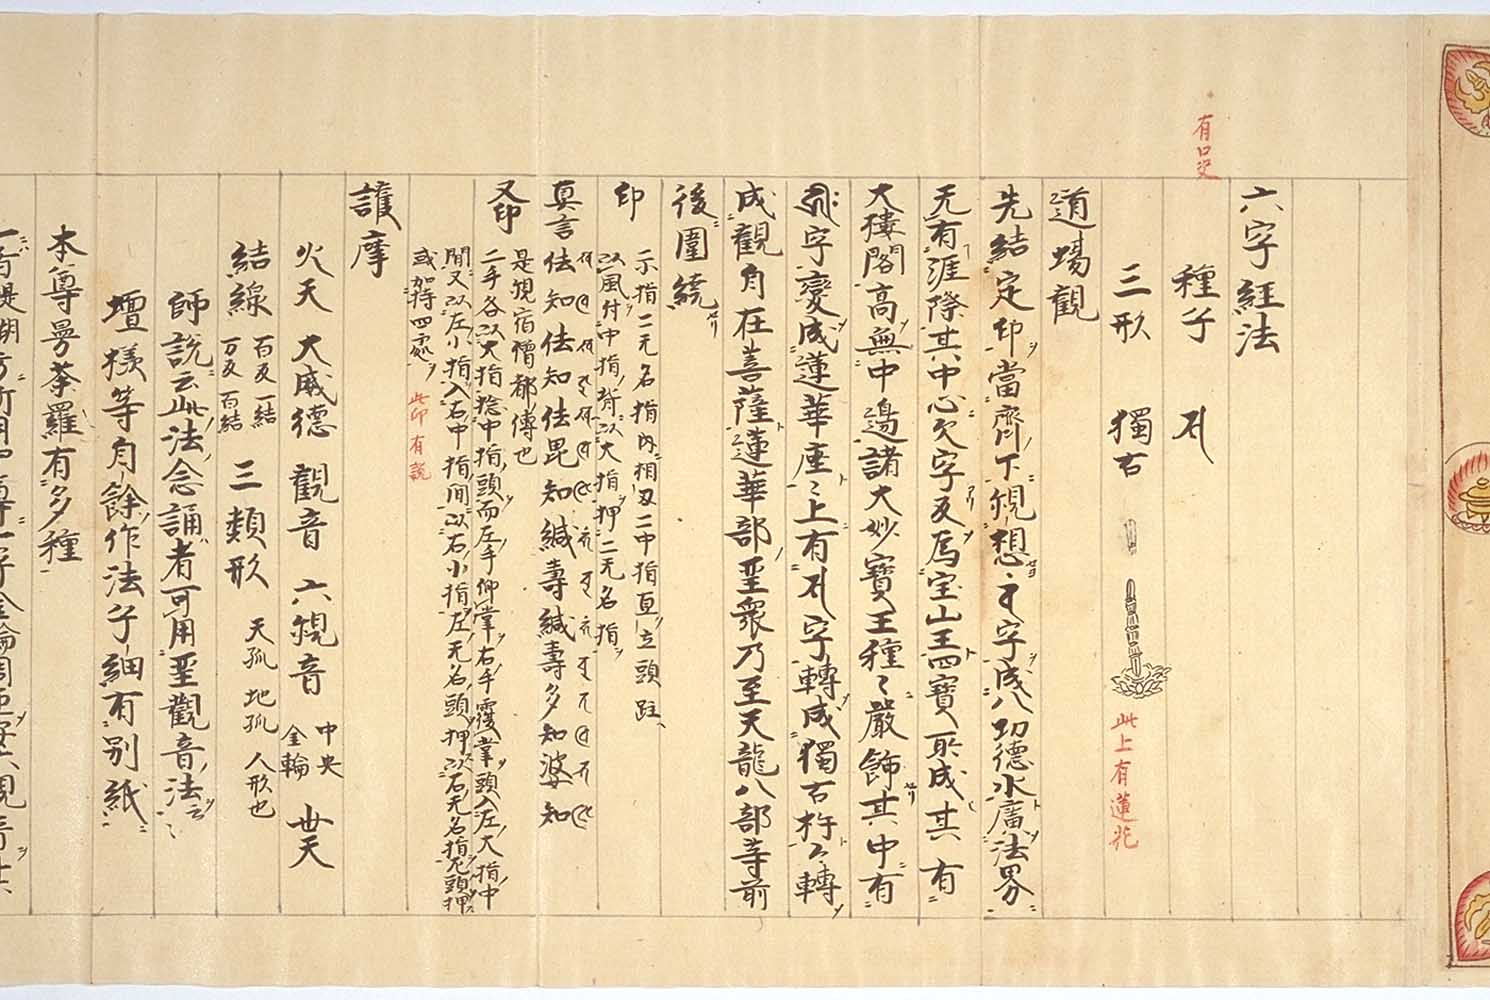 六字経法
有口史
種子
三形 獨古
此上有蓮花
道場觀
先結定印當齊下觀想 字成八功德水廣法界
无有涯際其中心 字反為宝山王四寶所成其有
大樓閣高無中邊諸大妙寶王種〻嚴飾其中有
字變成蓮華座〻上有 字轉成獨古杵〻轉
成觀自在菩薩蓮華部聖衆乃至天龍八部等前
後圍繞
印 二示指二无名指内相叉二中指直立頭跓
以風付中指背以大指押二无名指
真言 佉知佉知佉毘知緘壽緘壽多知婆知
是觀宿僧都傳也
又印 二手各以大指捻中指頭而左手仰掌右手覆掌頭入左大指中
間又以左小指入右中指間以右小指左无名頭押以右无名指 頭押
或加持四處 此印有説
護摩
火天 大威德 觀音 六觀音 中央金輪 世天
結線 百反一結 万反百結 三類形 天狐 地狐 人形也
師説云此法念誦者可用聖觀音法云〻
壇樣等自餘作法子細有別紙
本尊曼荼羅有多種